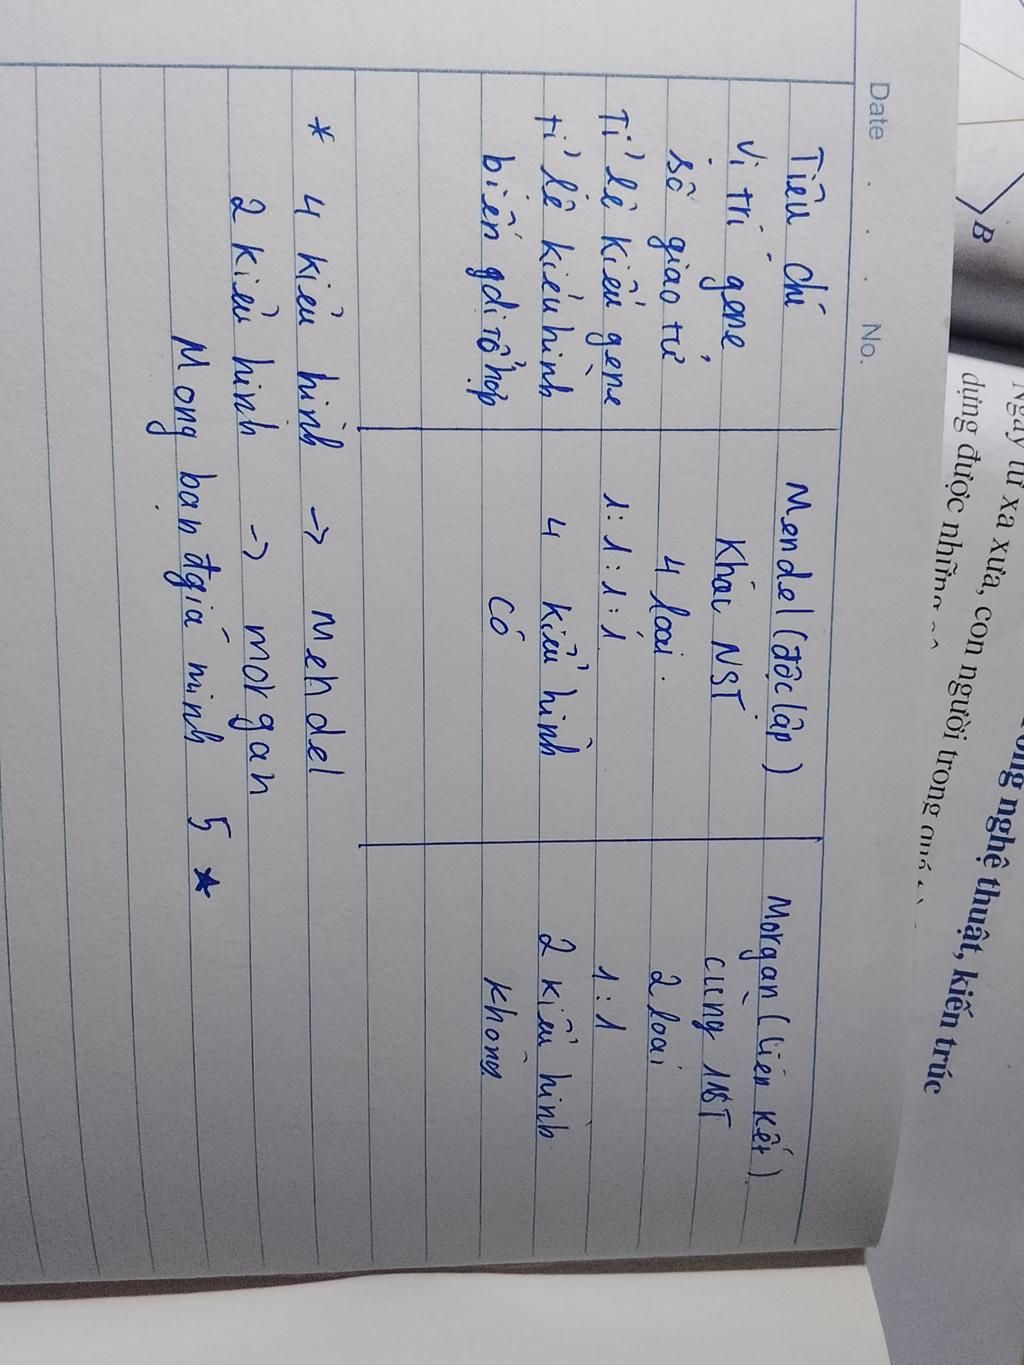 B
Ngày từ xa xưa, con người trong
dụng được những
ong nghệ thuật, kiến trúc
Date . . . No.
Tiêu chí Mendel (độc lập) Morgan (liên kết)
Vị trí gene Khác NST cùng 1 NST
số giao tử 4 loại. 2 loại
Tỉ lệ kiểu gene 1:1:1:1 1:1
tỉ lệ kiểu hình 4 kiểu hình 2 kiểu hình
biến dị tổ hợp Có Không
* 4 kiểu hình -> mendel
2 kiểu hình -> morgan
Mong bạn đgiá mình 5 ★